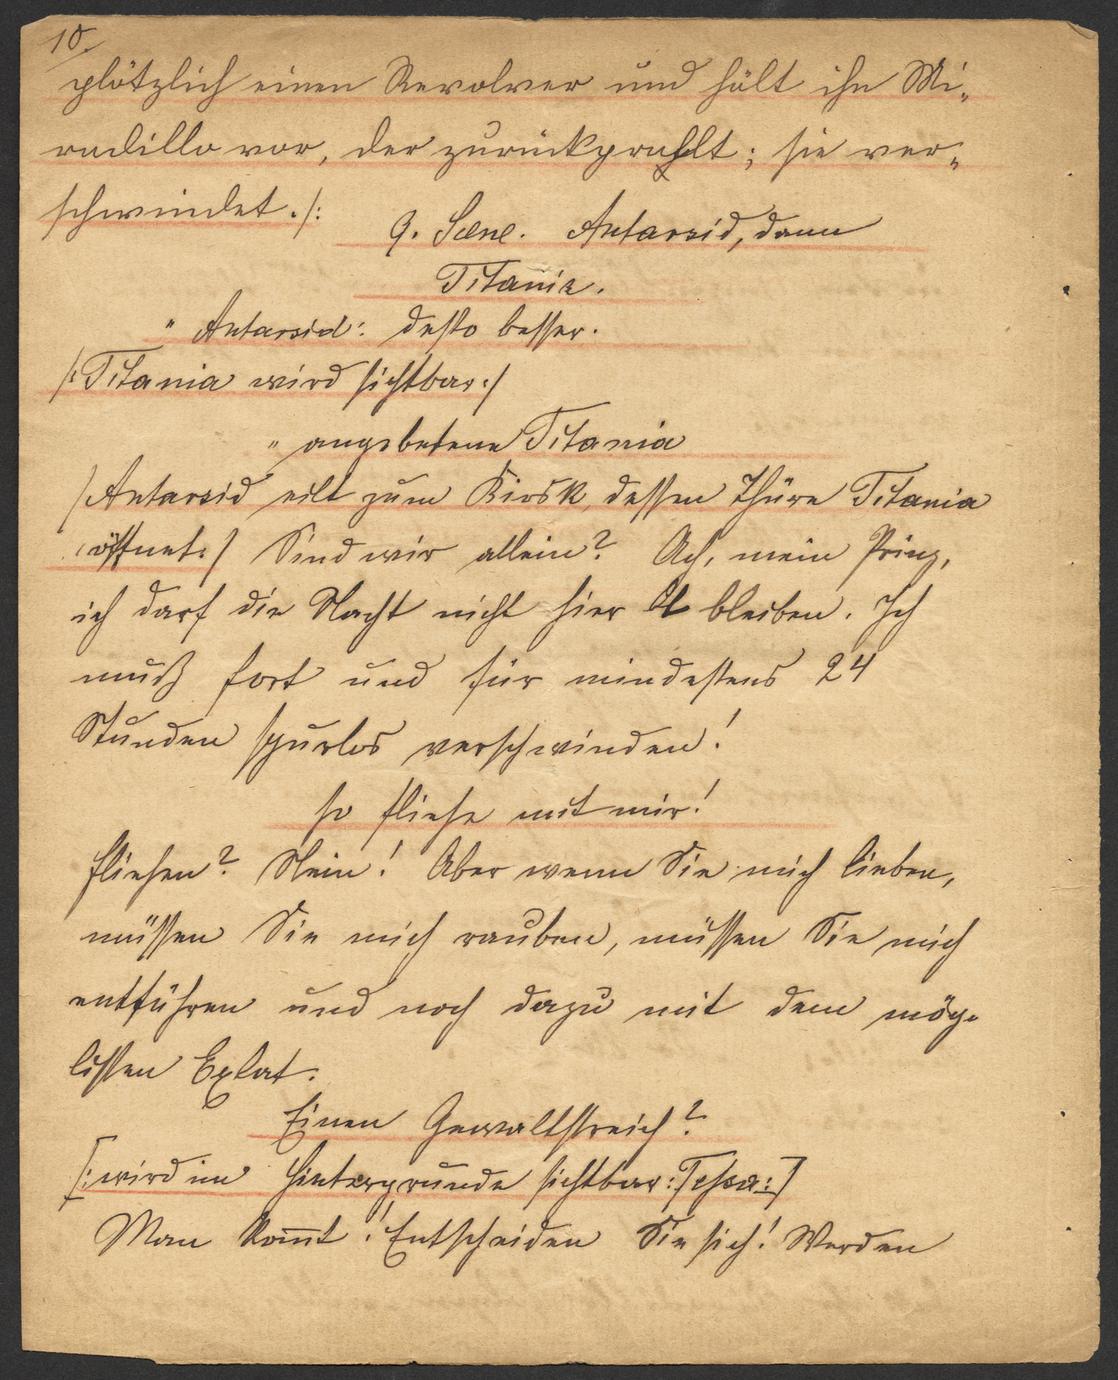 10.
plötzlich einen Revolver und hält ihn Mi-
radillo vor, der zurückprahlt; sie ver-
schwindet. /:
9. Scene. Antarsid, dann
Titania.
" Antarsid: desto besser.
/: Titania wird sichtbar :/
" angebetene Titania
/ Antarsid eilt zum Kiosk, dessen Thüre Titania
öffnet: / Sind wir allein? Ach, mein Prinz,
ich darf die Nacht nicht hier bleiben. Ich
muß fort und für mindestens 24
Stunden spurlos verschwinden!
so fliehe mit mir!
fliehen? Nein! Aber wenn Sie mich lieben,
müssen Sie mich rauben, müssen Sie mich
entführen und noch dazu mit dem mög-
listen Eclat.
Einen Gewaltstreich?
[: wird im Hintergrunde sichtbar: Tessa :]
Man kom̄t! Entscheiden Sie sich! Werden